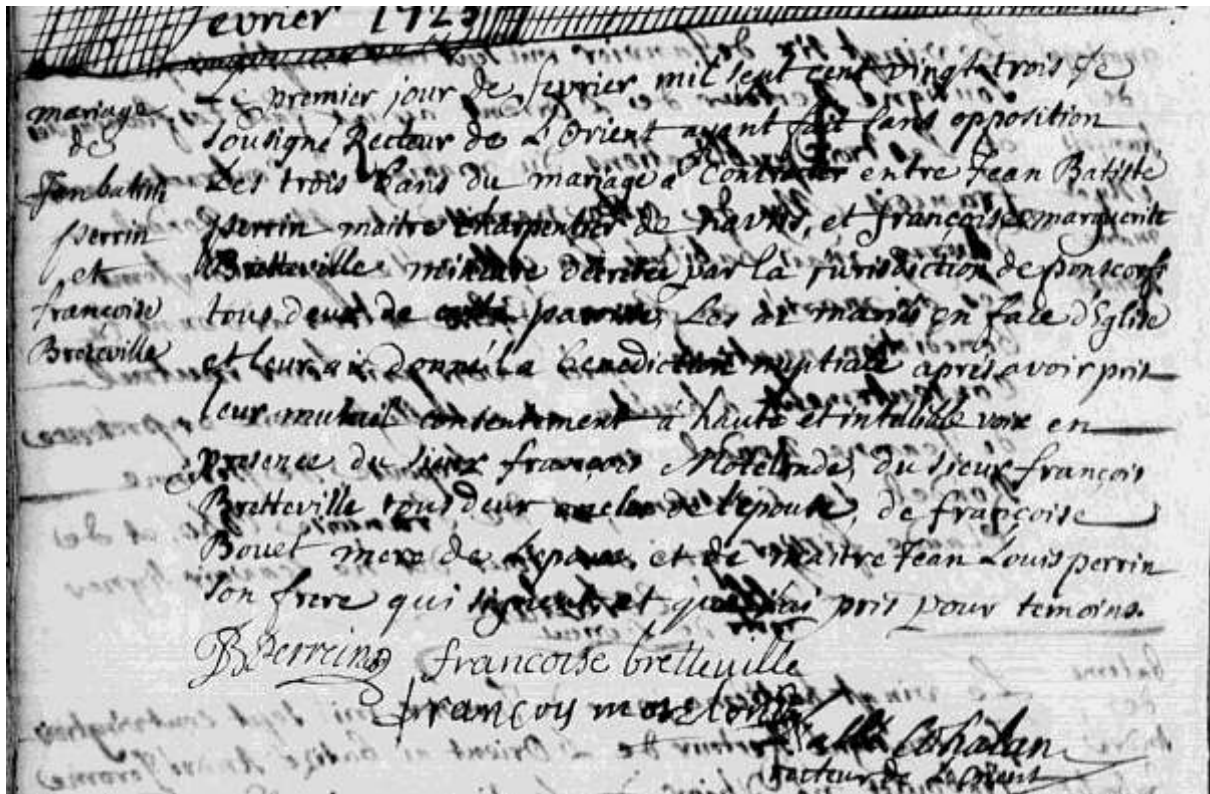 fevrier 1723
mariage
de
Jan batiste
perrin
et
françoise
Breteville
Le premier jour de fevrier mil sept cent vingt trois Je
sousigné Recteur de L'Orient ayant fait sans opposition
Les trois bans du mariage a contracter entre Jean Batiste
perrin maitre charpentier de navires, et françoise marguerite
Bretteville mineure decretée par la jurisdiction de ponscorf
tous deux de cette paroisse, Les ai mariés en face d'Eglise
et leur ai donné La benediction nuptiale aprés avoir pris
leur mutuel consentement à haute et intelligible voix en
presence du sieur françois Motelonde, du sieur françois
Bretteville tous deux oncles de l'epouse, de françoise
Bouet mere de L'epouse, et de maitre Jean Louis perrin
son frere qui signent et que j'ai pris pour temoins.
JBperreins francoise bretteville
françois
Cohalan
Recteur de L'orient